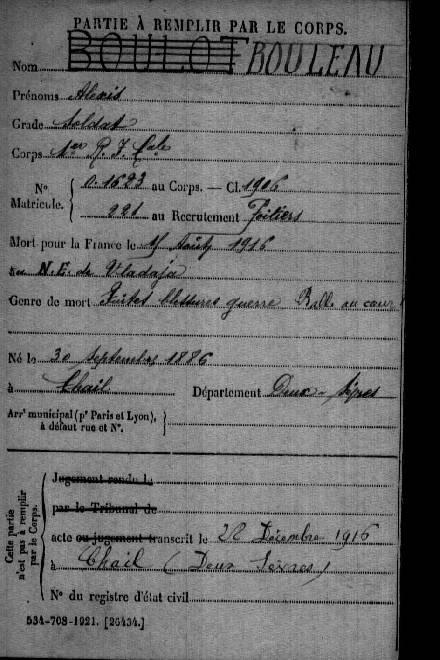 PARTIE À REMPLIR PAR LE CORPS.
Nom BOULOT BOULEAU
Prénoms Alexis
Grade Soldat
Corps 1er R. I. Cale
N° Matricule. { 0.1523 au Corps. — Cl. 1906
221 au Recrutement Poitiers
Mort pour la France le Août 1916
au N.E. de Vladaja
Genre de mort Suites blessures guerre Balle au cœur
Né le 30 Septembre 1886
à Chail Département Deux-Sèvres
Arrt municipal (pr Paris et Lyon), à défaut rue et N°. }
Cette partie n'est pas à remplir par le Corps.
Jugement rendu le
par le Tribunal de
acte ou jugement transcrit le 28 Décembre 1916
à Chail (Deux Sèvres)
N° du registre d'état civil
534-708-1921. [26434.]